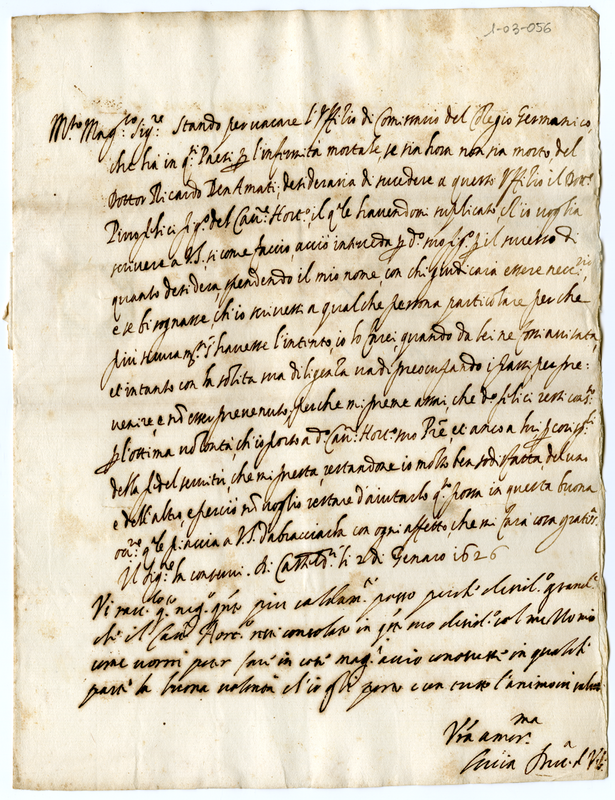 1-03-056
M.to Mag.co Sig.re Stando per vacare l'Uffitio di Comissario del Colegio Germanico,
che ha in q.ti Paesi p l'infermità mortale, se sin hora non sia morto, del
Dottor Ricardo Benamati, desideraria di succedere a questo Uffitio il Dott.
felici fig.o del Cau.r Hort.o, il q.le havendomi suplicato ch'io voglia
scrivere a V.S. si come faccio, acciò interceda p d.o suo fig.o p il successo di
quanto desidera spendendo il mio nome, con chi giudicarà essere necc.rio
e se bisognasse, ch'io scrivessi a qualche persona particolare perche
più sicuram.te s'havesse l'intento, io lo farei, quando da lei ne fossi avisata,
et intanto con la solita sua diligenza vadi preocupando i passi per pre:
venire, e nõ esser prevenuto, perche mi preme assai, che d.o felici resti
p l'ottima volontà, ch'io porto a d.o Cau.r Hort.o suo Pre, et anco a lui p
della servitù, che mi presta, restandone io molto ben sodisfatta, del uno
e dell'altro, e perciò nõ voglio restare d'aiutarlo q.to posso in questa buona
occ.ne q.le piaccia a V.S. d'abracciarla con ogni affetto, che mi sarà cosa gratis.ma
Il Sig.re la conservi. di li 2 di Genaro 1626
Vi racc.do q.o neg.o q.to più caldam.te posso perche desidero grand.te
che il Cau.r Hort.o resti consolato in q.to suo desid.o col mezzo mio
come vorrei poter fare in cose mag.ri acciò conoscesse in qualche
parte la buona volontà ch'io gli porto e con tutto l'animo vi saluto
V.ra amor.ma